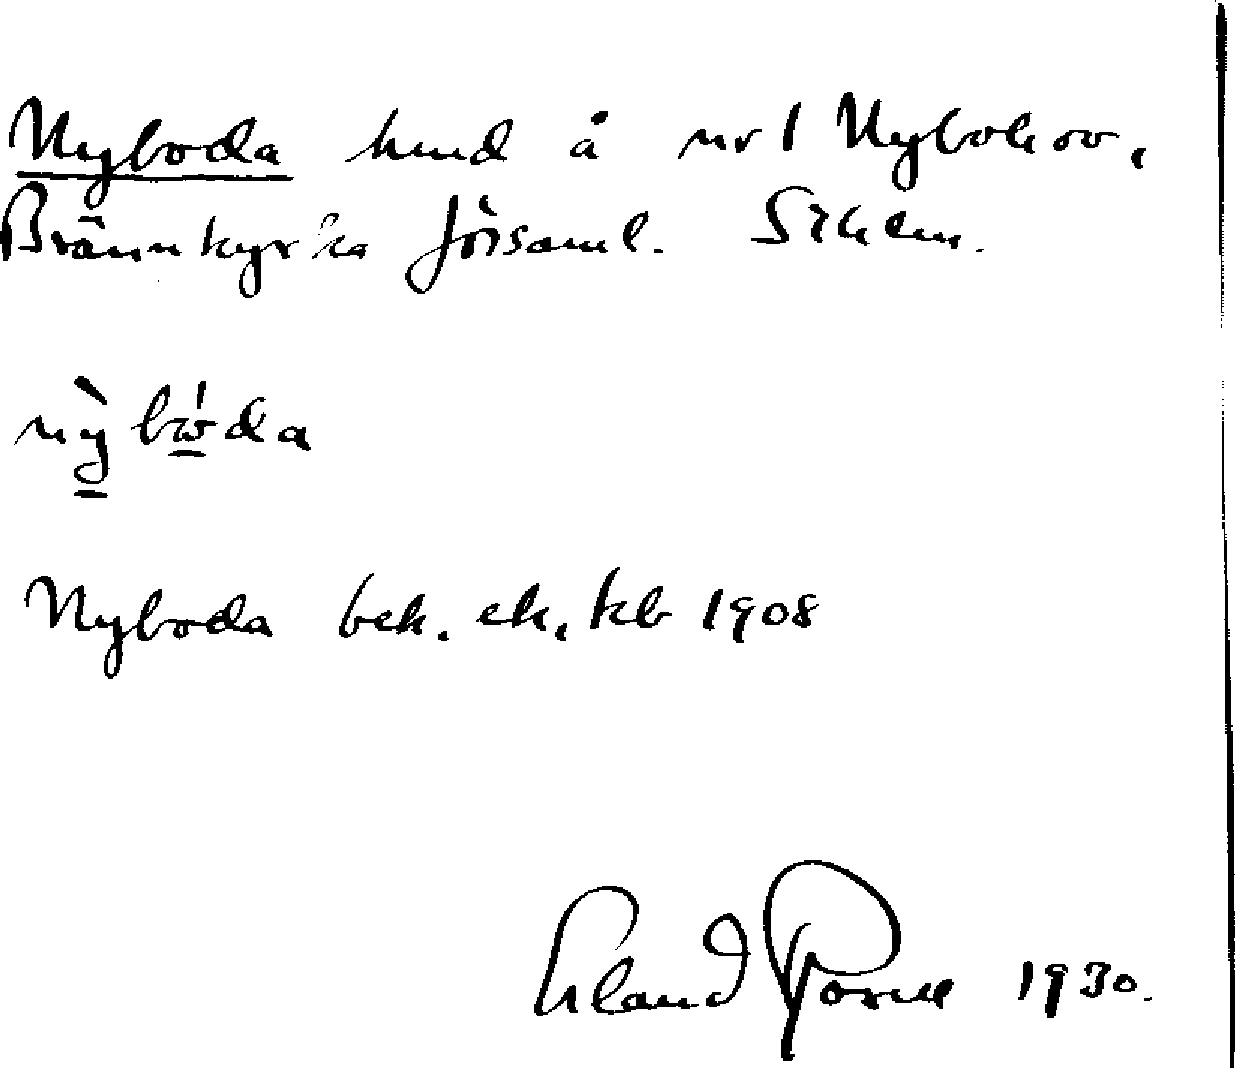 Nyboda hmd å nr 1 Nybohov,
Brännkyrka församl. Sthlm.
nỳbωda
Nyboda bek. ek, kb 1908
Erland 1930.